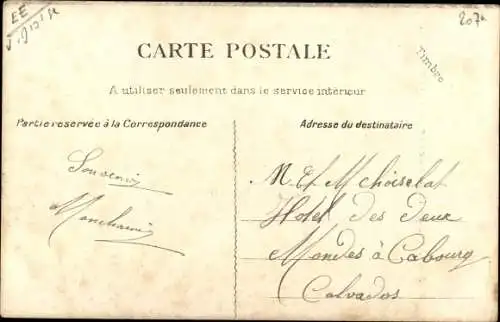 EE
207
CARTE POSTALE
Timbre
A utiliser seulement dans le service intérieur
Partie réservée à la Correspondance
Adresse du destinataire
Souvenir
M. Et M Choiselat
Hotel des deux
Mondes à Cabourg
Calvados